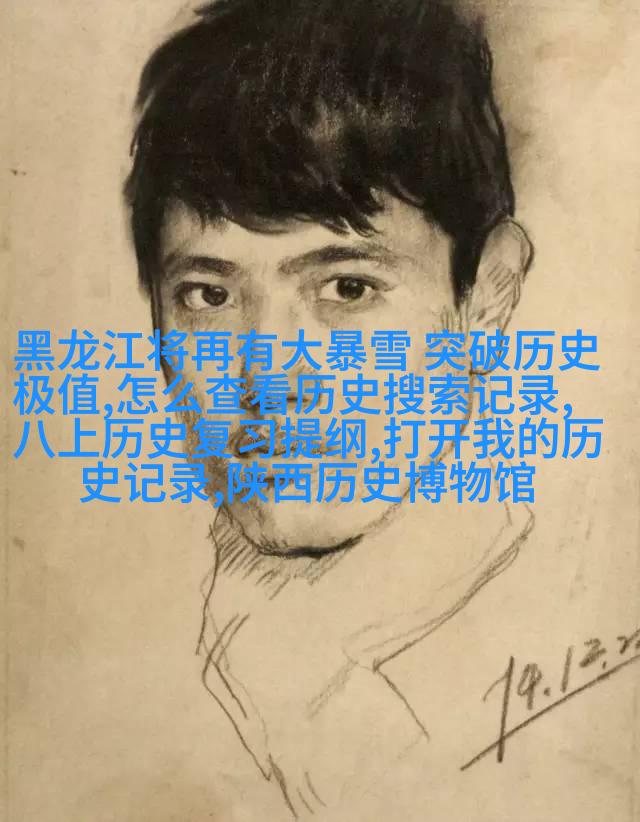 黑龙江将再有大暴雪 突破历史
极值,怎么查看历史搜索记录,
八上历史复习提纲,打开我的历
史记录,陕西历史博物馆